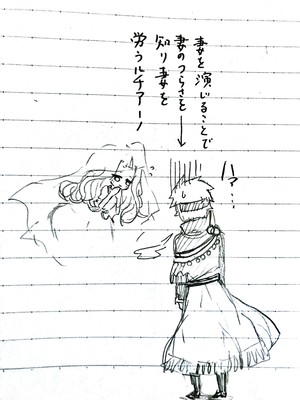 妻を演じることで
妻のつらさを
知り妻を
労うルチアーノ
ハァ…